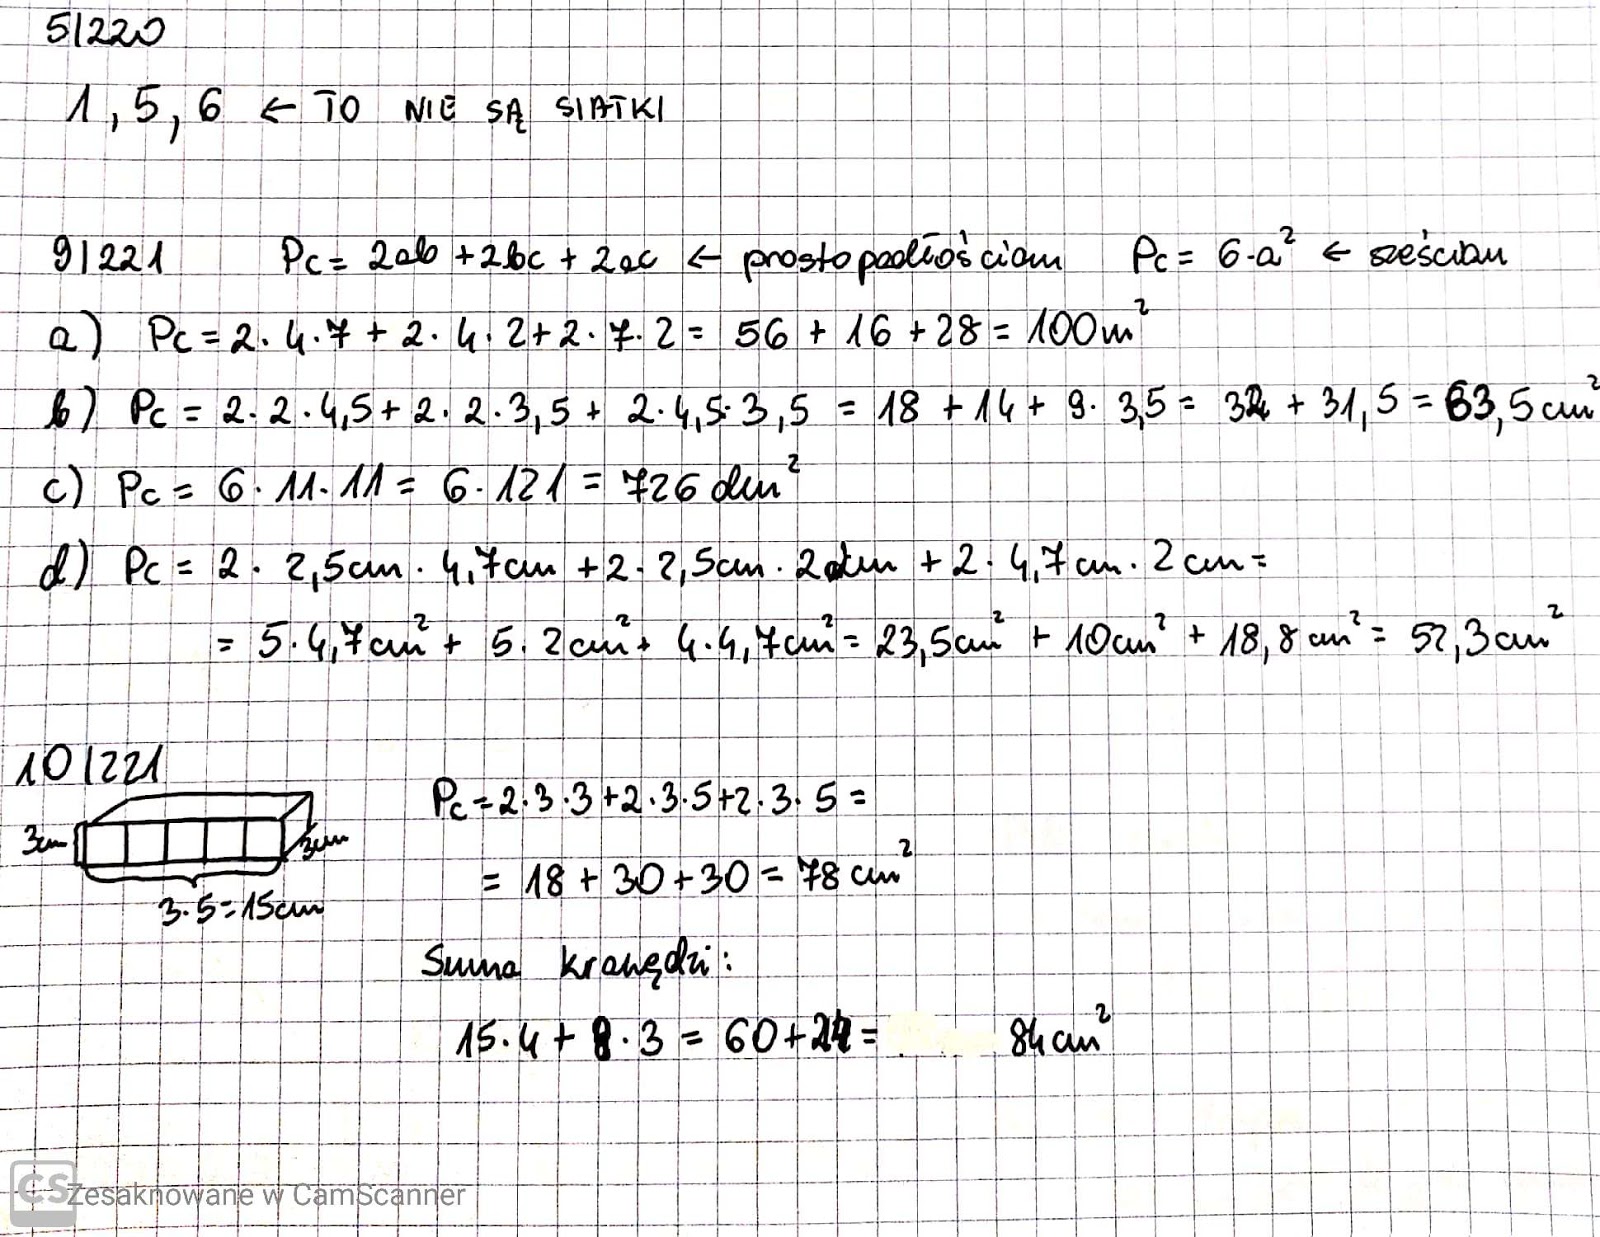 5/220
1, 5, 6 ← TO NIE SĄ SIATKI
9/221 Pc = 2ab + 2bc + 2ac ← prostopadłościan Pc = 6·a² ← sześcian
a) Pc = 2·4·7 + 2·4·2 + 2·7·2 = 56 + 16 + 28 = 100m²
b) Pc = 2·2·4,5 + 2·2·3,5 + 2·4,5·3,5 = 18 + 14 + 9·3,5 = 32 + 31,5 = 63,5cm²
c) Pc = 6·11·11 = 6·121 = 726dm²
d) Pc = 2·2,5cm·4,7cm + 2·2,5cm·2cm + 2·4,7cm·2cm =
= 5·4,7cm² + 5·2cm² + 4·4,7cm² = 23,5cm² + 10cm² + 18,8cm² = 52,3cm²
10/221
3cm 3cm
3·5=15cm
Pc = 2·3·3 + 2·3·5 + 2·3·5 =
= 18 + 30 + 30 = 78cm²
Suma krawędzi:
15·4 + 8·3 = 60 + 24 = 84cm²
CS Zeskanowane w CamScanner